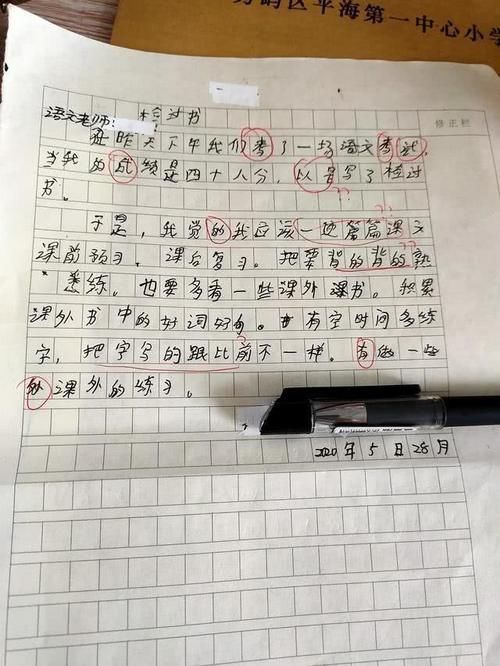 码区平海第一中心小学
检讨书
修正栏
语文老师:
在昨天下午我们考了一场语文考试,
当我的成绩是四十八分,以是写了检讨
书。
??
于是,我觉的我应该一边篇篇课文
课前预习、课后复习。把要背的背的熟
悉练。也要多看一些课外课书。积累
课外书中的好词好句。有空时间多练
字,把字写的跟比前不一样。有做一些
外课外的练习。
2020年5月28月